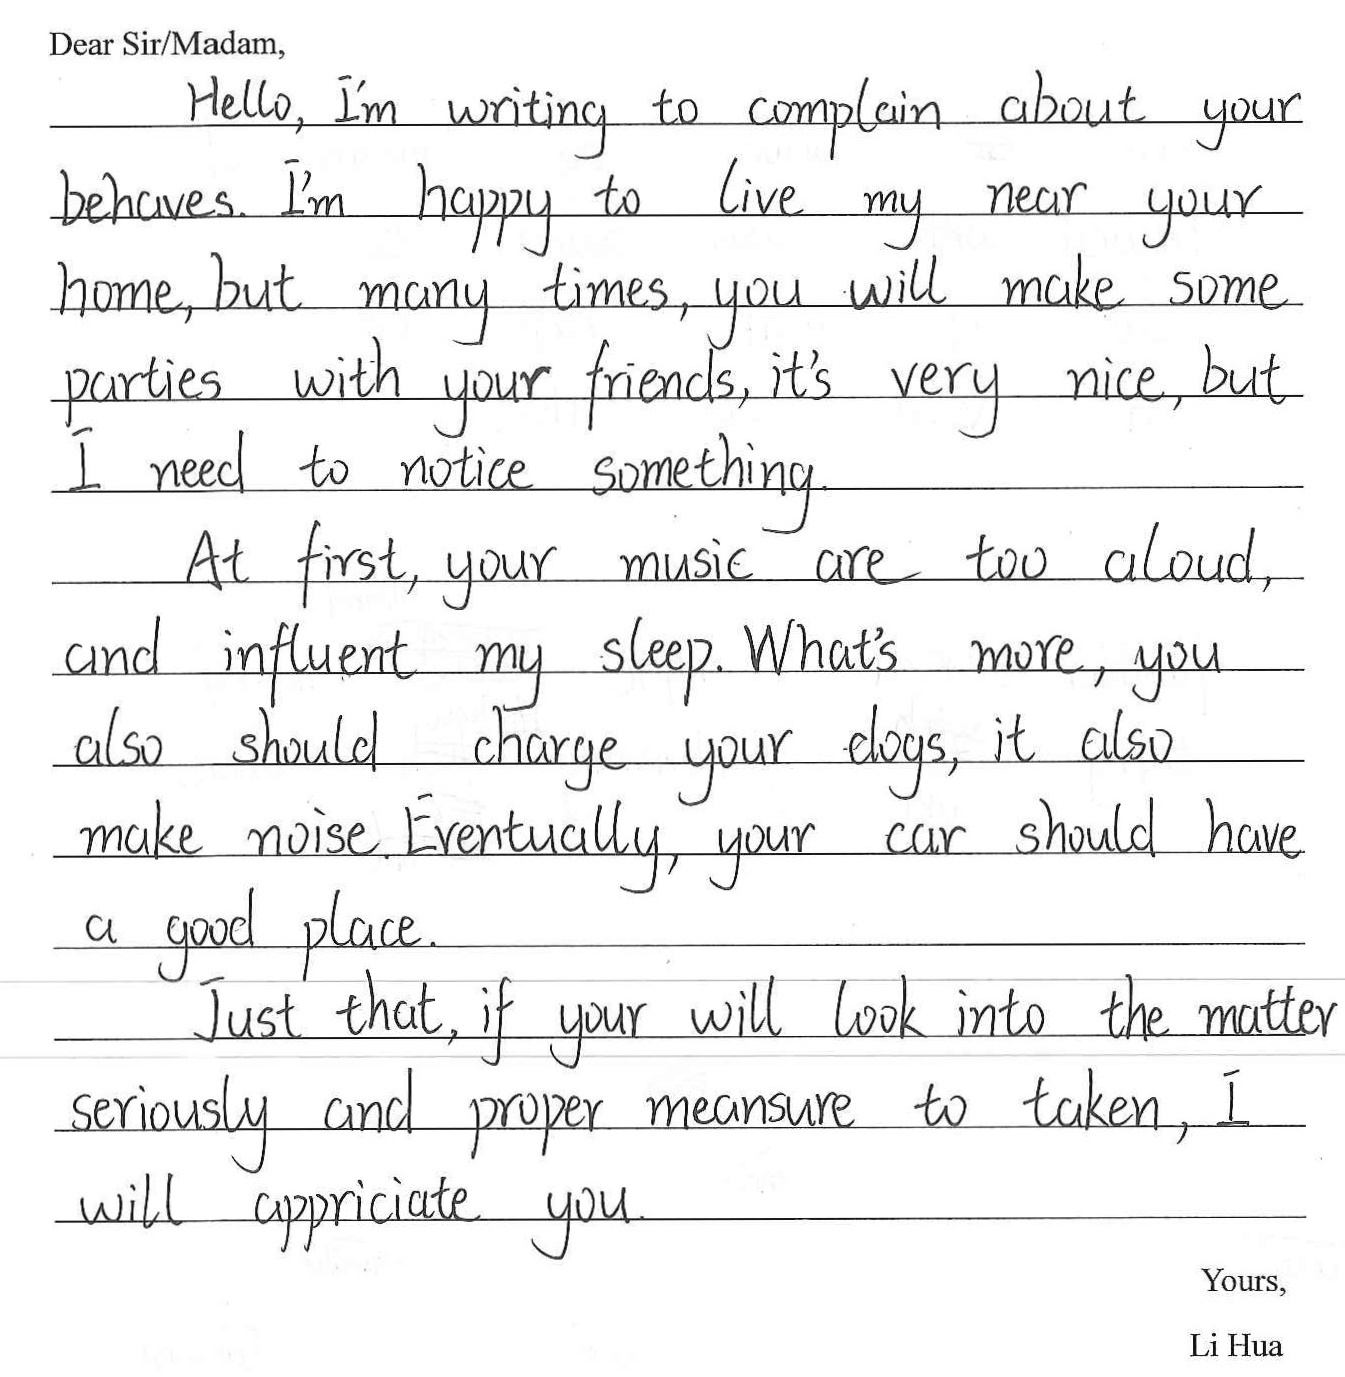 Dear Sir/Madam,
Hello, I'm writing to complain about your
behaves. I'm happy to live my near your
home, but many times, you will make some
parties with your friends, it's very nice, but
I need to notice something.
At first, your music are too aloud,
and influent my sleep. What's more, you
also should charge your dogs, it also
make noise. Eventually, your car should have
a good place.
Just that, if your will look into the matter
seriously and proper meansure to taken, I
will appriciate you.
Yours,
Li Hua